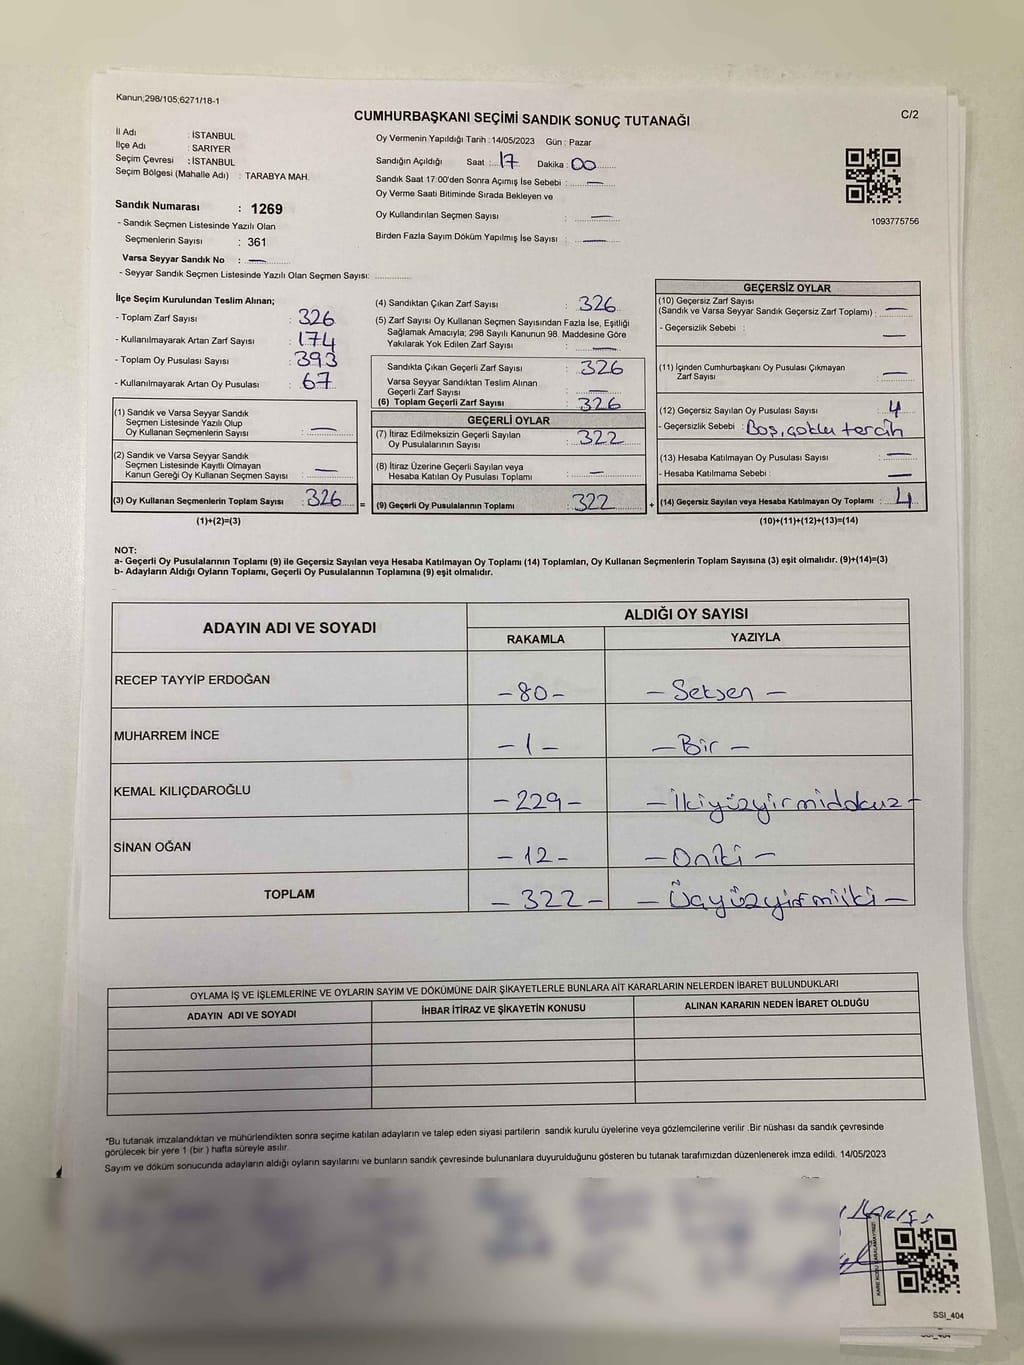 Kanun;298/105;6271/18-1
CUMHURBAŞKANI SEÇİMİ SANDIK SONUÇ TUTANAĞI
C/2
İl Adı : İSTANBUL
İlçe Adı : SARIYER
Seçim Çevresi : İSTANBUL
Seçim Bölgesi (Mahalle Adı) : TARABYA MAH.
Sandık Numarası : 1269
- Sandık Seçmen Listesinde Yazılı Olan
Seçmenlerin Sayısı : 361
Varsa Seyyar Sandık No : —
- Seyyar Sandık Seçmen Listesinde Yazılı Olan Seçmen Sayısı:
Oy Vermenin Yapıldığı Tarih : 14/05/2023 Gün : Pazar
Sandığın Açıldığı Saat : 17 Dakika : 00
Sandık Saat 17:00'den Sonra Açımış İse Sebebi : —
Oy Verme Saati Bitiminde Sırada Bekleyen ve
Oy Kullandırılan Seçmen Sayısı : —
Birden Fazla Sayım Döküm Yapılmış İse Sayısı : —
1093775756
İlçe Seçim Kurulundan Teslim Alınan;
- Toplam Zarf Sayısı : 326
- Kullanılmayarak Artan Zarf Sayısı : 174
- Toplam Oy Pusulası Sayısı : 393
- Kullanılmayarak Artan Oy Pusulası : 67
(1) Sandık ve Varsa Seyyar Sandık
Seçmen Listesinde Yazılı Olup
Oy Kullanan Seçmenlerin Sayısı : —
(2) Sandık ve Varsa Seyyar Sandık
Seçmen Listesinde Kayıtlı Olmayan
Kanun Gereği Oy Kullanan Seçmen Sayısı : —
(3) Oy Kullanan Seçmenlerin Toplam Sayısı : 326 =
(1)+(2)=(3)
(4) Sandıktan Çıkan Zarf Sayısı : 326
(5) Zarf Sayısı Oy Kullanan Seçmen Sayısından Fazla İse, Eşitliği
Sağlamak Amacıyla; 298 Sayılı Kanunun 98. Maddesine Göre
Yakılarak Yok Edilen Zarf Sayısı : —
Sandıkta Çıkan Geçerli Zarf Sayısı : 326
Varsa Seyyar Sandıktan Teslim Alınan
Geçerli Zarf Sayısı : —
(6) Toplam Geçerli Zarf Sayısı : 326
GEÇERLİ OYLAR
(7) İtiraz Edilmeksizin Geçerli Sayılan
Oy Pusulalarının Sayısı : 322
(8) İtiraz Üzerine Geçerli Sayılan veya
Hesaba Katılan Oy Pusulası Toplamı : —
(9) Geçerli Oy Pusulalarının Toplamı : 322 +
GEÇERSİZ OYLAR
(10) Geçersiz Zarf Sayısı
(Sandık ve Varsa Seyyar Sandık Geçersiz Zarf Toplamı) : —
- Geçersizlik Sebebi : —
(11) İçinden Cumhurbaşkanı Oy Pusulası Çıkmayan
Zarf Sayısı : —
(12) Geçersiz Sayılan Oy Pusulası Sayısı : 4
- Geçersizlik Sebebi : Boş, çoklu tercih
(13) Hesaba Katılmayan Oy Pusulası Sayısı : —
- Hesaba Katılmama Sebebi : —
(14) Geçersiz Sayılan veya Hesaba Katılmayan Oy Toplamı : 4
(10)+(11)+(12)+(13)=(14)
NOT:
a- Geçerli Oy Pusulalarının Toplamı (9) ile Geçersiz Sayılan veya Hesaba Katılmayan Oy Toplamı (14) Toplamları, Oy Kullanan Seçmenlerin Toplam Sayısına (3) eşit olmalıdır. (9)+(14)=(3)
b- Adayların Aldığı Oyların Toplamı, Geçerli Oy Pusulalarının Toplamına (9) eşit olmalıdır.
ADAYIN ADI VE SOYADI ALDIĞI OY SAYISI
RAKAMLA YAZIYLA
RECEP TAYYİP ERDOĞAN -80- — Seksen —
MUHARREM İNCE -1- — Bir —
KEMAL KILIÇDAROĞLU -229- — İkiyüzyirmidokuz —
SİNAN OĞAN -12- — Oniki —
TOPLAM -322- — Üçyüzyirmiiki —
OYLAMA İŞ VE İŞLEMLERİNE VE OYLARIN SAYIM VE DÖKÜMÜNE DAİR ŞİKAYETLERLE BUNLARA AİT KARARLARIN NELERDEN İBARET BULUNDUKLARI
ADAYIN ADI VE SOYADI İHBAR İTİRAZ VE ŞİKAYETİN KONUSU ALINAN KARARIN NEDEN İBARET OLDUĞU
*Bu tutanak imzalandıktan ve mühürlendikten sonra seçime katılan adayların ve talep eden siyasi partilerin sandık kurulu üyelerine veya gözlemcilerine verilir .Bir nüshası da sandık çevresinde
görülecek bir yere 1 (bir ) hafta süreyle asılır.
Sayım ve döküm sonucunda adayların aldığı oyların sayılarını ve bunların sandık çevresinde bulunanlara duyurulduğunu gösteren bu tutanak tarafımızdan düzenlenerek imza edildi. 14/05/2023
SSI_404